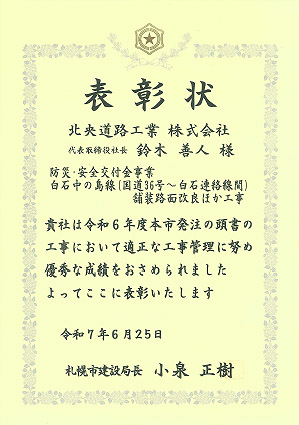 表彰状
北央道路工業 株式会社
代表取締役社長 鈴木 善人 様
防災・安全交付金事業
白石中の島線(国道36号～白石連絡線間)
舗装路面改良ほか工事
貴社は令和6年度本市発注の頭書の
工事において適正な工事管理に努め
優秀な成績をおさめられました
よってここに表彰いたします
令和7年6月25日
札幌市建設局長 小泉 正樹